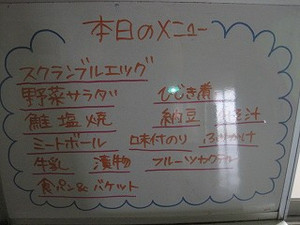 本日のメニュー
スクランブルエッグ
野菜サラダ ひじき煮
鮭塩焼 納豆 みそ汁
ミートボール 味付のり ふりかけ
牛乳 漬物 フルーツカクテル
食パン&バケット